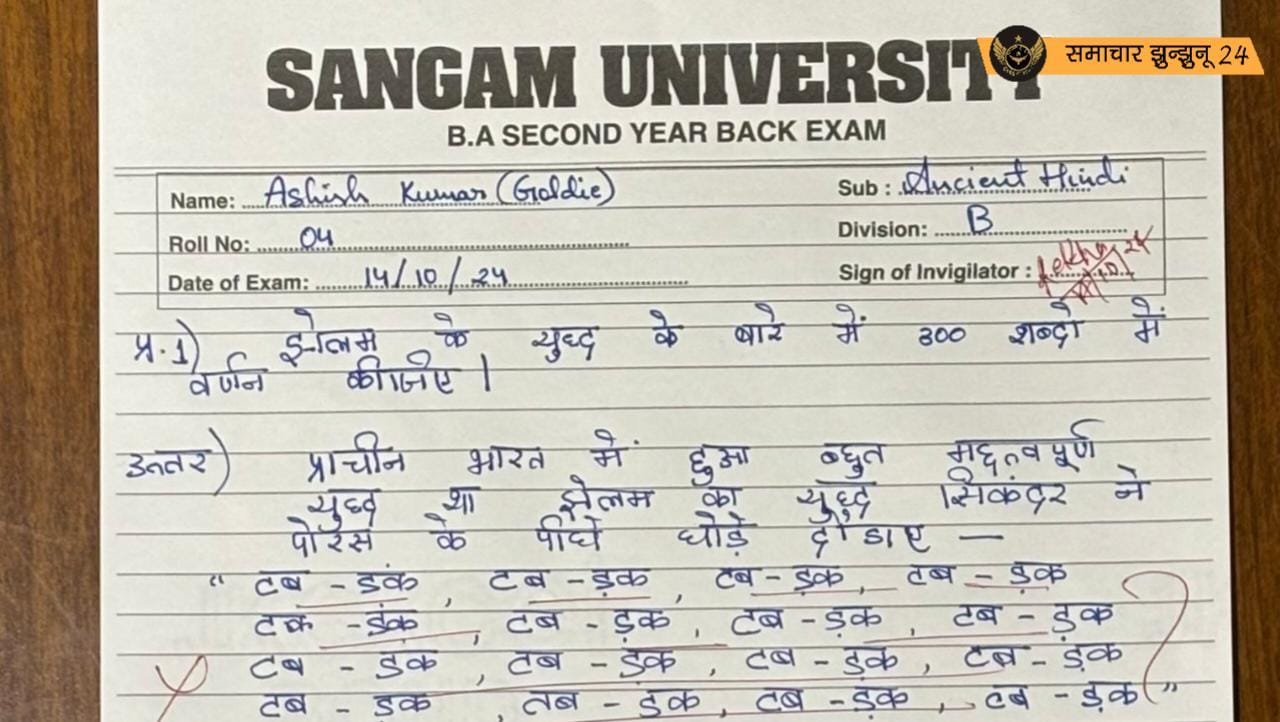 समाचार झुन्झुनू 24
SANGAM UNIVERSITY
B.A SECOND YEAR BACK EXAM
Name: Ashish Kumar (Goldie) Sub : Ancient Hindi
Roll No: 04 Division: B
Date of Exam: 14/10/24 Sign of Invigilator :
प्र.1) झेलम के युध्द के बारे में 300 शब्दो में
वर्णन कीजिए।
उत्तर) प्राचीन भारत में हुआ बहुत महत्वपूर्ण
युध्द था झेलम का युध्द सिकंदर ने
पोरस के पीछे घोड़े दौडाए —
“ टब - ड़ंक, टब - ड़क, टब - ड़क, टब - ड़क
टक - डंक, टब - ड़क, टब - ड़क, टब - ड़क
टब - ड़क, टब - ड़क, टब - ड़क, टब - ड़क
टब - ड़क, तब - ड़क, टब - ड़क, टब - ड़क ”